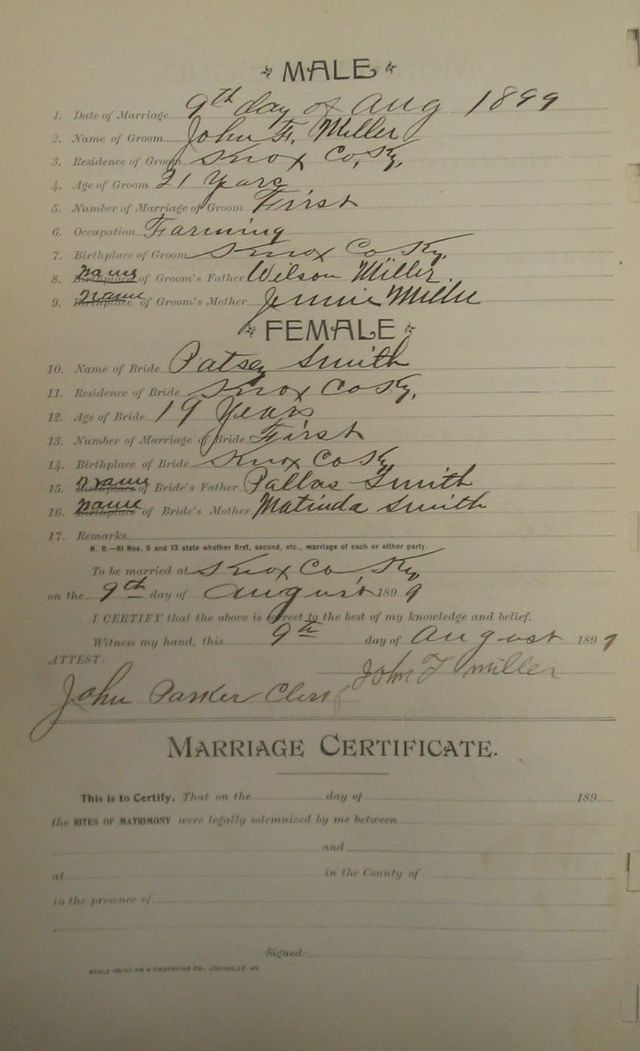 MALE
1. Date of Marriage 9th day of Aug 1899
2. Name of Groom John F. Miller
3. Residence of Groom Knox Co, Ky,
4. Age of Groom 21 Years
5. Number of Marriage of Groom First
6. Occupation Farming
7. Birthplace of Groom Knox Co Ky.
8. Birthplace name of Groom's Father Wilson Miller
9. Birthplace name of Groom's Mother Jennie Miller
FEMALE
10. Name of Bride Patsey Smith
11. Residence of Bride Knox Co Ky,
12. Age of Bride 19 Years
13. Number of Marriage of Bride First
14. Birthplace of Bride Knox Co Ky
15. Birthplace name of Bride's Father Pallas Smith
16. Birthplace name of Bride's Mother Matinda Smith
17. Remarks
N. B.—At Nos. 5 and 13 state whether first, second, etc., marriage of each or either party.
To be married at Knox Co Ky
on the 9th day of August 1899
I CERTIFY that the above is correct to the best of my knowledge and belief.
Witness my hand, this 9th day of August 1899
ATTEST: John F Miller
John Parker Clerk
MARRIAGE CERTIFICATE.
This is to Certify, That on the day of 189
the RITES OF MATRIMONY were legally solemnized by me between
and
at in the County of
in the presence of
Signed: